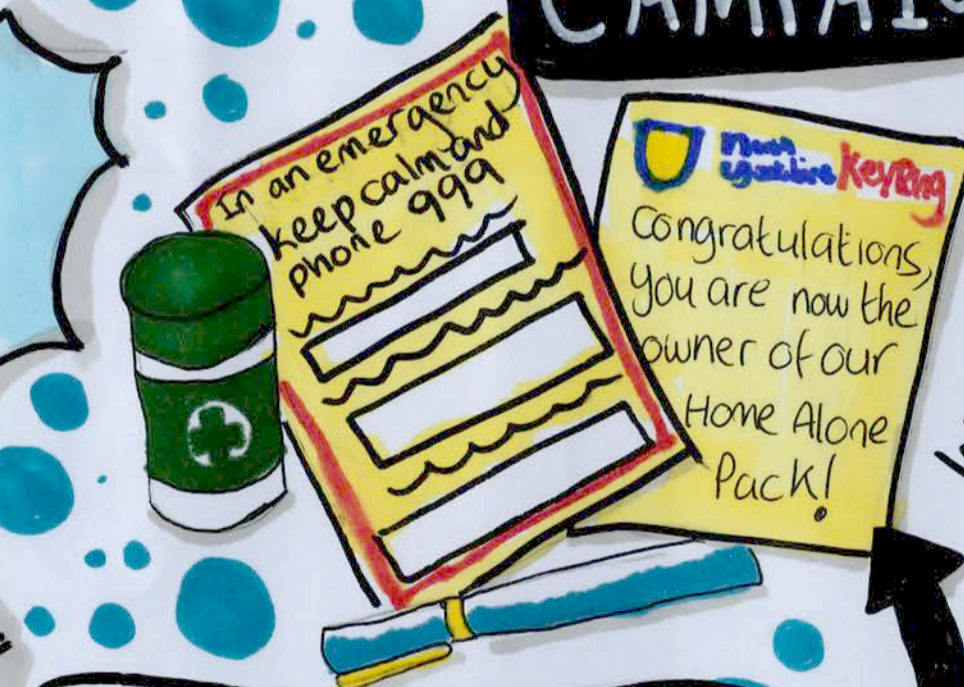 CAMPAIG
In an emergency
keep calm and
phone 999
KeyRing
Congratulations,
you are now the
owner of our
Home Alone
Pack!